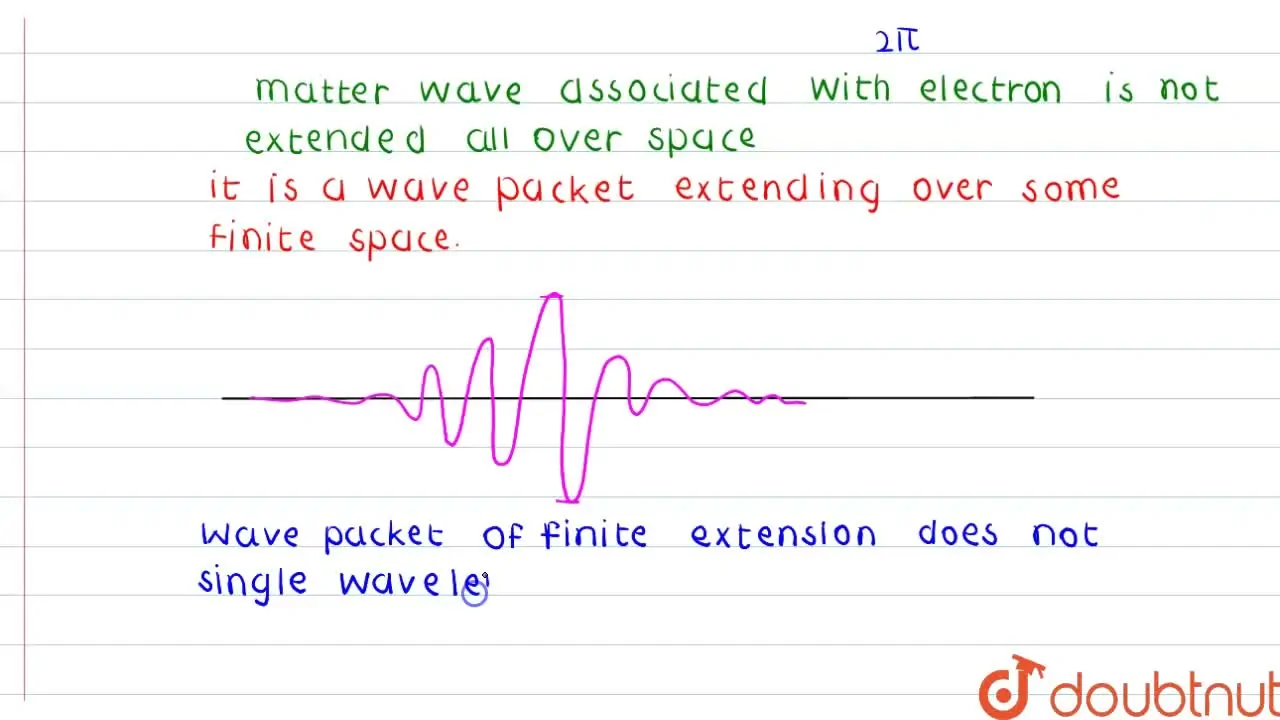 2π
matter wave associated with electron is not
extended all over space
it is a wave packet extending over some
finite space.
wave packet of finite extension does not
single wavele
doubtnut